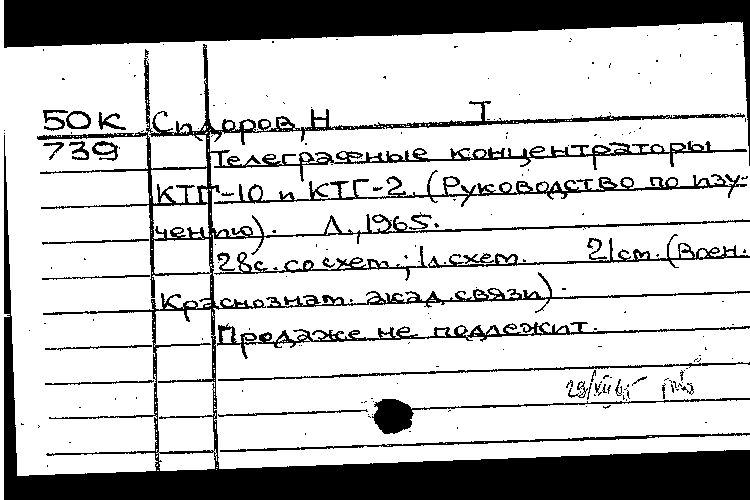 50К Сидоров, Н Т
739 Телеграфные концентраторы
КТГ-10 и КТГ-2. (Руководство по изу-
чению). Л., 1965.
28с. со схем.; 1л. схем. 21см. (Воен.
Краснознам. акад. связи).
Продаже не подлежит.
29/XII 65